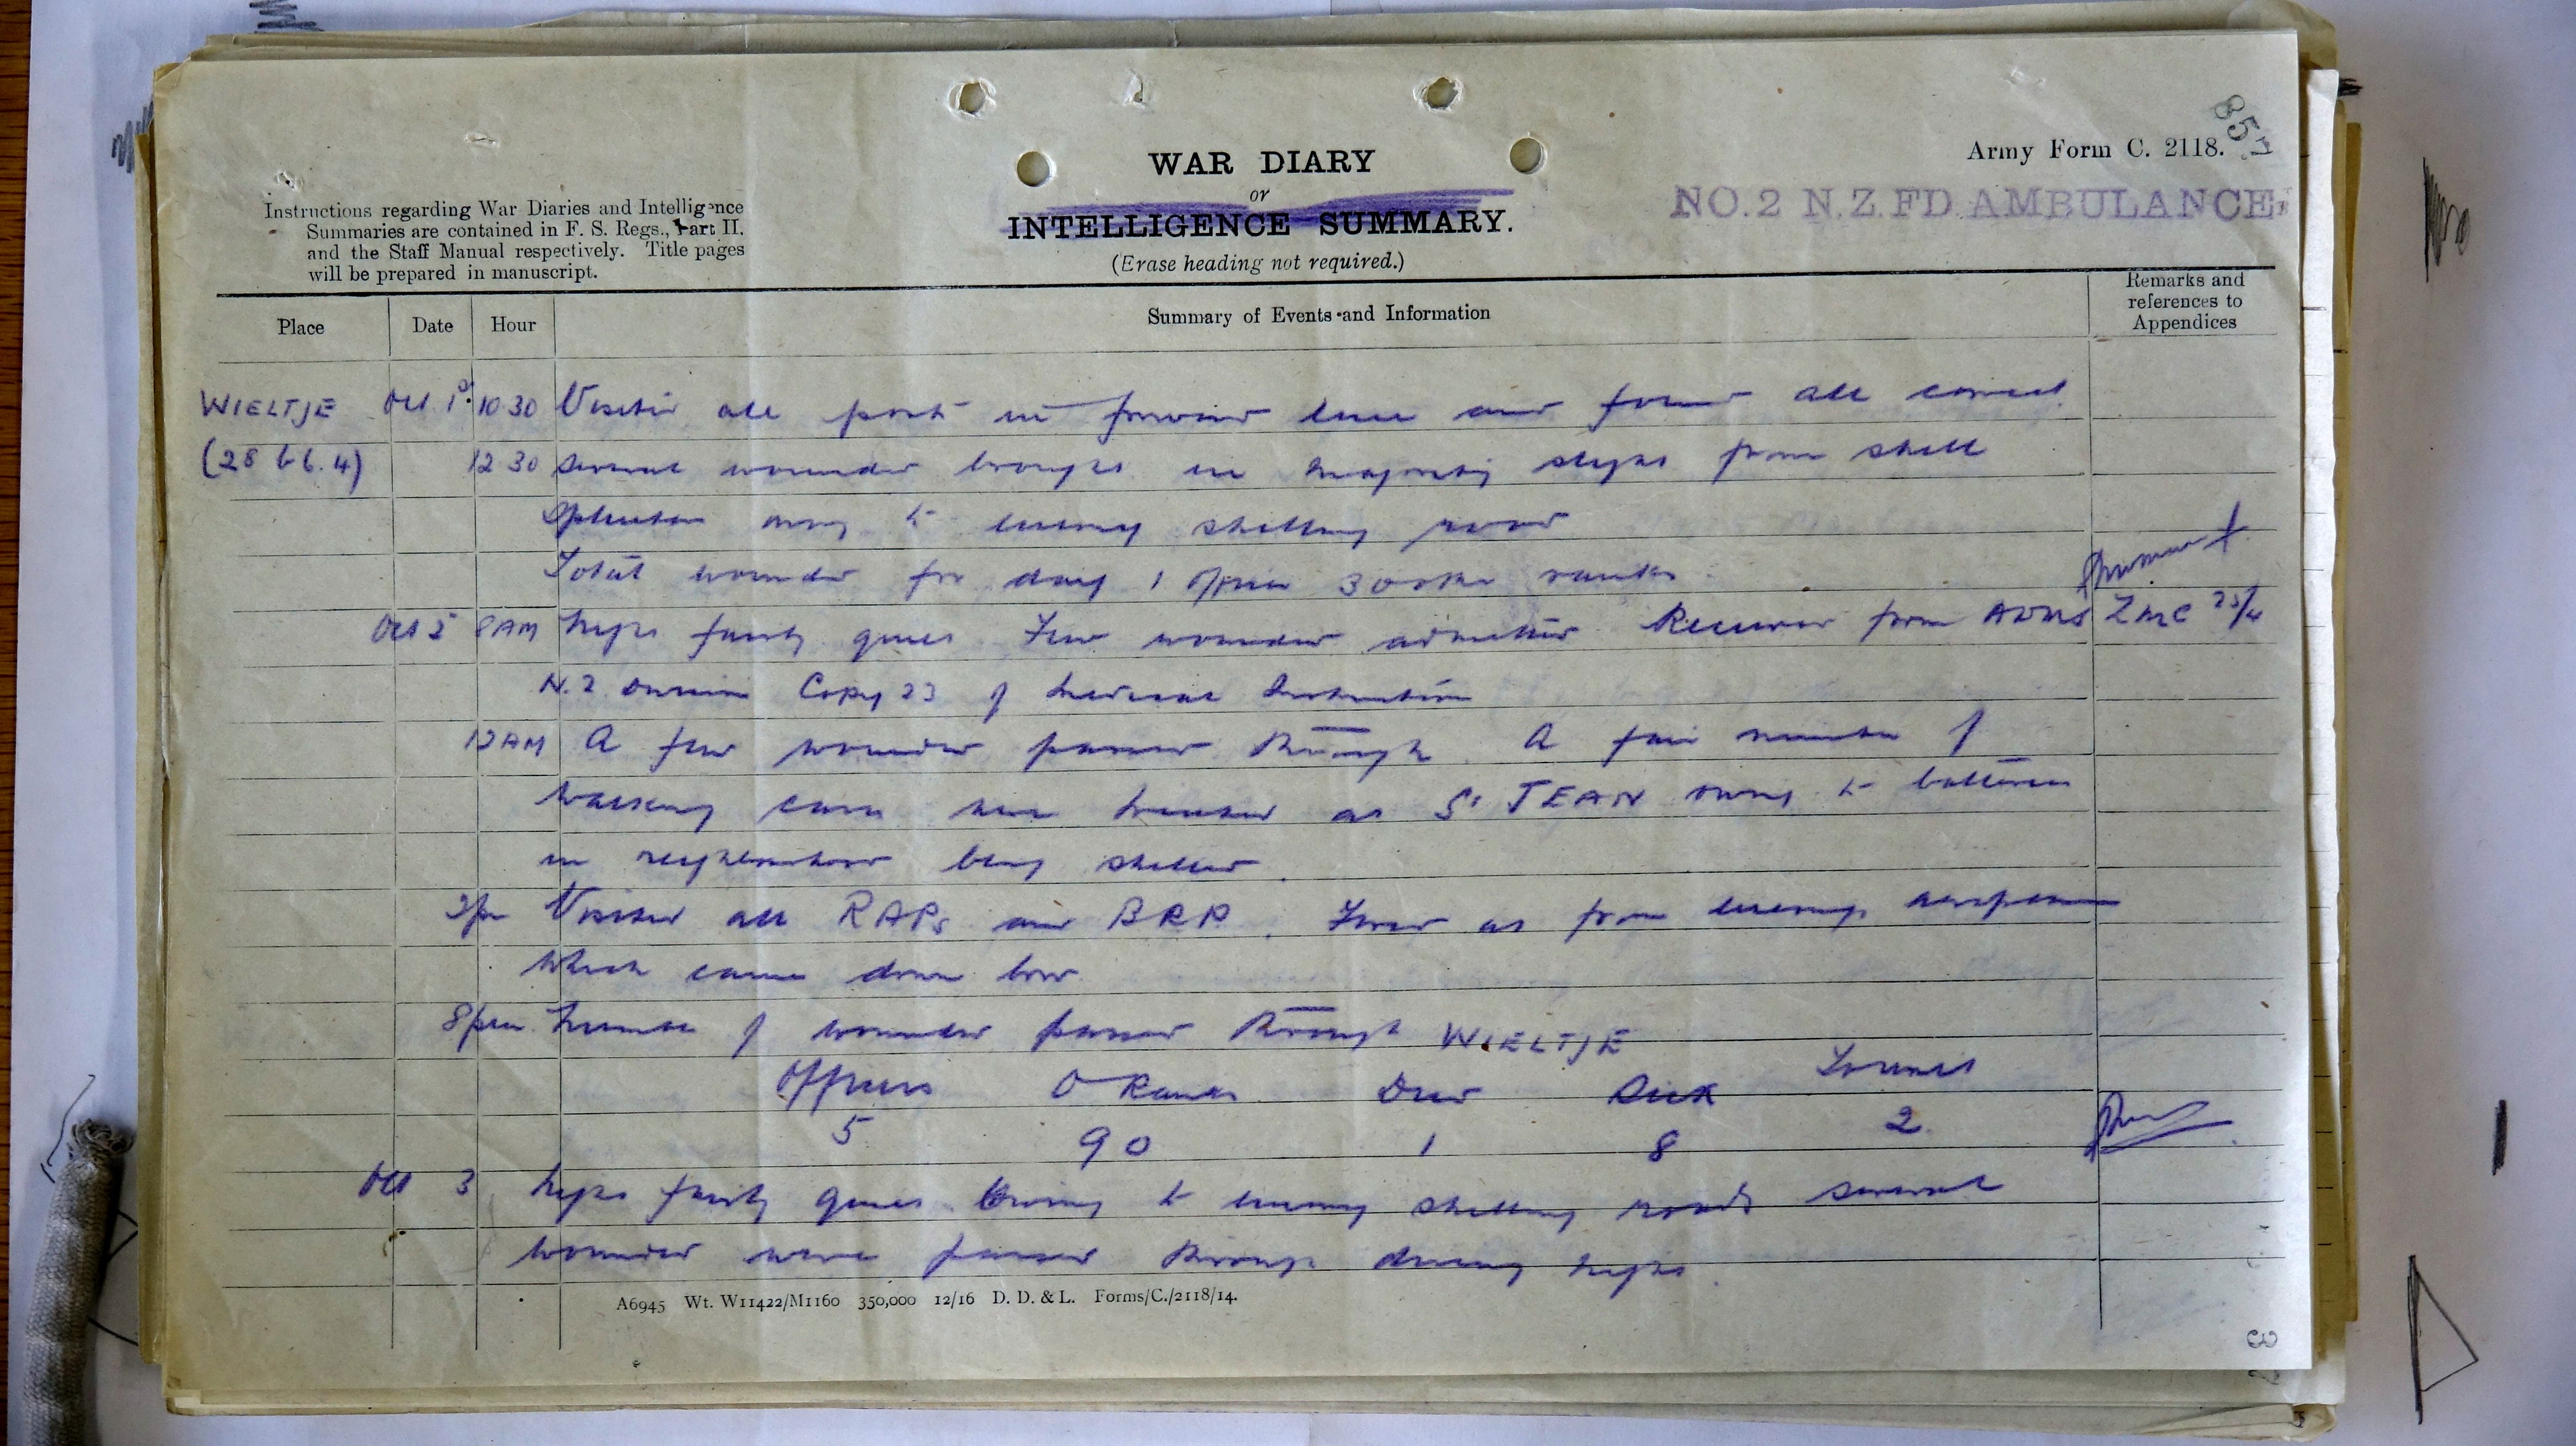 857
Army Form C. 2118.
WAR DIARY
or
INTELLIGENCE SUMMARY.
(Erase heading not required.)
NO. 2 N.Z. FD AMBULANCE
Instructions regarding War Diaries and Intelligence
Summaries are contained in F. S. Regs., Part II.
and the Staff Manual respectively. Title pages
will be prepared in manuscript.
Place Date Hour Summary of Events and Information Remarks and references to Appendices
WIELTJE Oct. 1st 10 30 Visited all posts in forward line and found all correct.
12 30 Several wounded brought in majority slight from shell
splinters owing to enemy shelling road
Total wounded for day 1 officer 30 other ranks.
Oct 2 8 AM Night fairly quiet Few wounded admitted Received from ADMS
N.Z. Division Copy 23 of Medical Instructions
12 AM A few wounded passed through. A fair number of
walking cases were treated at St JEAN owing to batteries
in neighbourhood being shelled.
2pm Visited all RAPs and BRP. Fired at from enemy aeroplane
which came down low
8pm Number of wounded passed through WIELTJE
Officers O Ranks Died Sick
5 90 1 8 2
Oct 3 Night fairly quiet. Owing to enemy shelling roads several
wounded were passed through during night.
A6945 Wt. W11422/M1160 350,000 12/16 D. D. & L. Forms/C./2118/14.